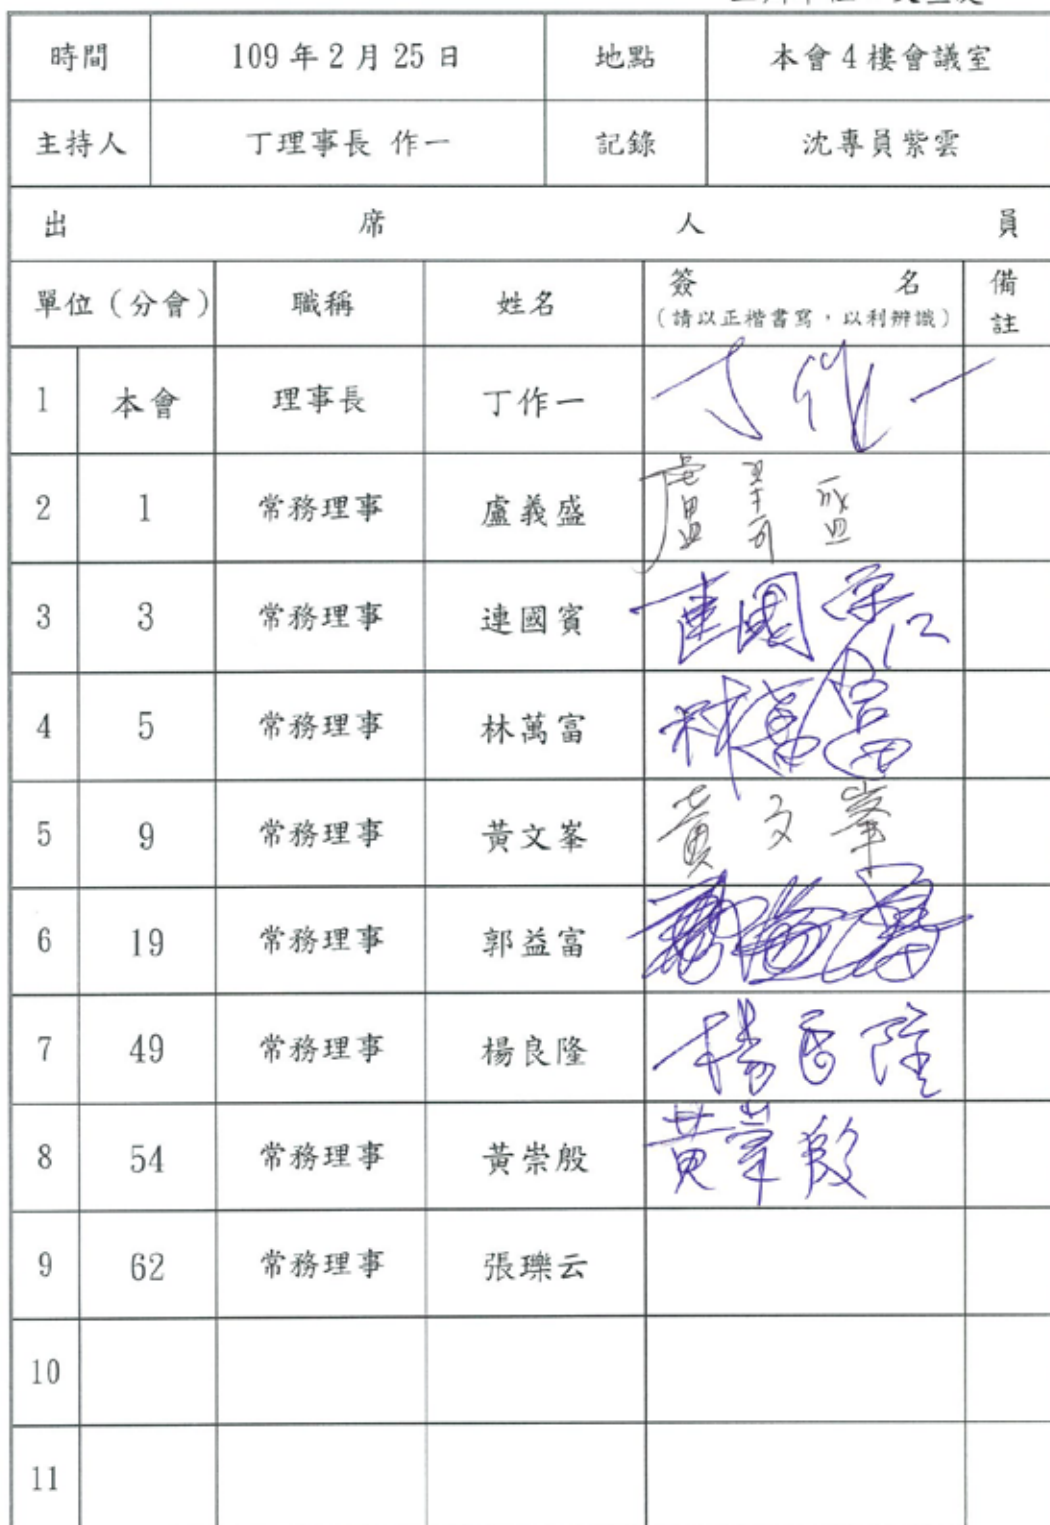 時間 109年2月25日 地點 本會4樓會議室
主持人 丁理事長 作一 記錄 沈專員紫雲
出席人員
單位（分會） 職稱 姓名 簽名 備註
（請以正楷書寫，以利辨識）
1 本會 理事長 丁作一 丁作一
2 1 常務理事 盧義盛 盧義盛
3 3 常務理事 連國賓 連國賓
4 5 常務理事 林萬富 林萬富
5 9 常務理事 黃文峯 黃文峯
6 19 常務理事 郭益富
7 49 常務理事 楊良隆 楊良隆
8 54 常務理事 黃崇殷 黃崇殷
9 62 常務理事 張瓅云
10
11